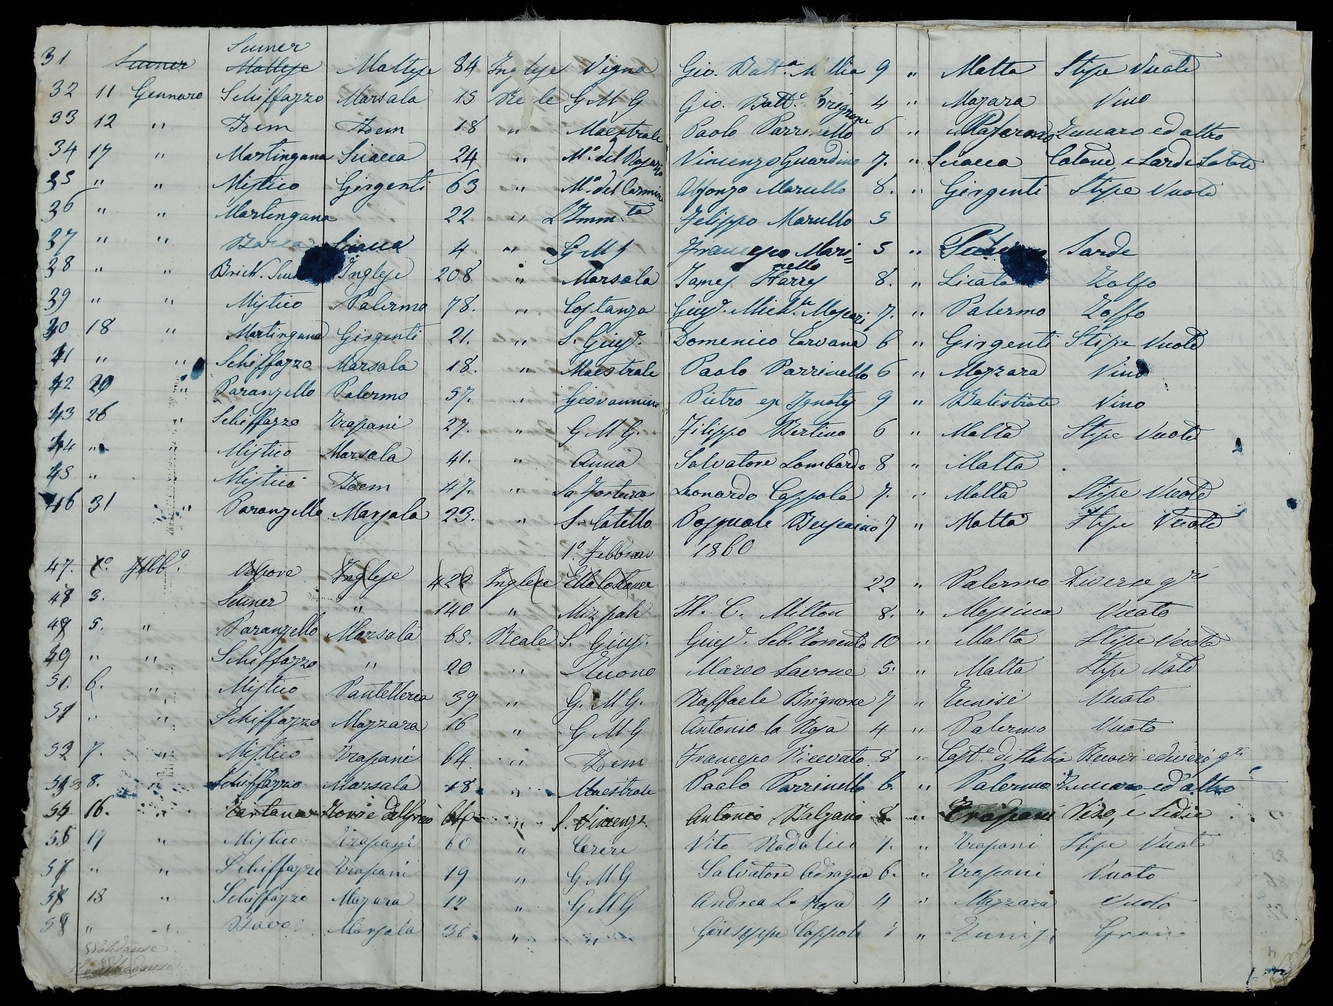 31 Scuner Maltese 84 Inglese Vigna Gio. Batt.a 9 " Malta Stipe Vuoto
32 11 Gennaro Schiffazzo Marsala 15 Reale G M G Gio. Batt.a Brignone 4 " Mazara Vino
33 12 " Idem Idem 18 " Maestrale Paolo Parrinello 6 " Zumaro ed altro
34 17 " Martingana Sciacca 24 " M.a del Vincenzo Guardino 7. " Sciacca e Sarde Salate
35 " " Mistico Girgenti 63 " M.a del Carmine Alfonzo Marullo 8. " Girgenti Stipe Vuoto
36 " " Martingana 22 " L'Imm.ta Filippo Marullo 5
37 " " Barca Sciacca 4 " G M G Francesco Marinello 5 " Sarde
38 " " Brick Inglese 208 " Marsala James Harry 8. " Licata Zolfo
39 " " Mistico Palermo 78. " Costanza Gius.e 7. " Palermo Zolfo
40 18 " Martingana Girgenti 21. " S. Gius.e Domenico Caruana 6 " Girgenti Stipe Vuoto
41 " " Schiffazzo Marsala 18. " Maestrale Paolo Parrinello 6 " Mazzara Vino
42 20 " Paranzello Palermo 57. " Giovannino Pietro 9 " Balestrate Vino
43 26 Schiffazzo Trapani 27. " G M G. Filippo Bertino 6 " Malta Stipe Vuoto
44 " Mistico Marsala 41. " Anna Salvatore Lombardo 8 " Malta
45 " Mistico Idem 47. " La Fortuna Leonardo Coppola 7. " Malta Stipe Vuoto
46 31 " Paranzello Marsala 23. " S. Catello Pasquale 7 " Malta Stipe Vuoto
1° Febbraro 1860
47. 1° Febb.o Vapore Inglese Inglese 22 " Palermo Diverse
48 3. Scuner " 140 " Mizpah H. C. Milton 8. " Messina Vuoto
49 5. " Paranzello Marsala 65. Reale S. Gius.e Gius.e 10 " Malta Stipe Vuoto
49 " " Schiffazzo " 20 " Marco Savone 5. " Malta Stipe
50 6. " Mistico Pantelleria 39 " G. M. G. Raffaele Brignone 7 " Tunise Vuoto
51 " " Schiffazzo Mazzara 16 " G M G Antonio la Rosa 4 " Palermo Vuoto
52 7. " Mistico Trapani 64 " Idem Francesco 8 "
53 8. " Schiffazzo Marsala 18. " Maestrale Paolo Parrinello 6. " Palermo Zumaro ed altro
54 16. " Tartana 64 " S. Vincenzo Antonio Balzano 8. " Trapani
55 17 " Mistico Trapani 60 " Cerere Vito 7. " Trapani Stipe Vuoto
56 " " Schiffazzo Trapani 19 " G M G Salvatore 6. " Trapani Vuoto
57 18 " Schiffazzo Mazara 12 " G M G Andrea La Rosa 4 " Mazzara Vuoto
58 " " Bovo Marsala 30. " " Giuseppe Coppola " Tunisi